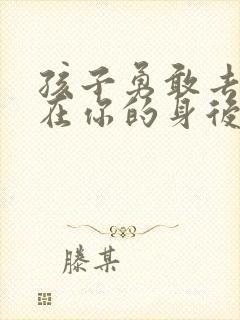 孩子勇敢去
在你的身後
滕某